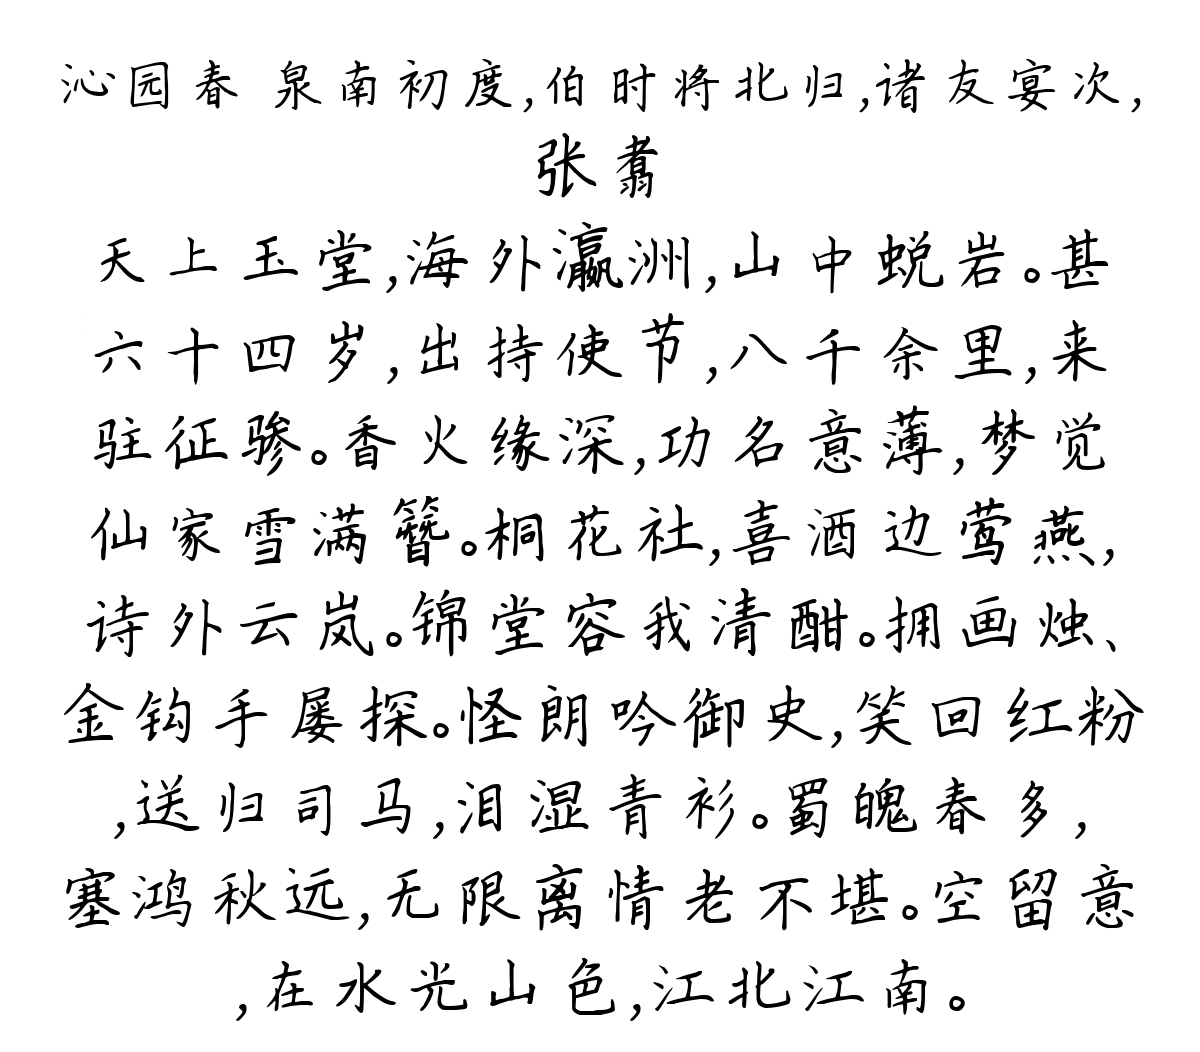 沁园春 泉南初度,伯时将北归,诸友宴次,
张翥
天上玉堂,海外瀛洲,山中蜕岩。甚
六十四岁,出持使节,八千余里,来
驻征骖。香火缘深,功名意薄,梦觉
仙家雪满簪。桐花社,喜酒边莺燕,
诗外云岚。锦堂容我清酣。拥画烛、
金钩手屡探。怪朗吟御史,笑回红粉
,送归司马,泪湿青衫。蜀魄春多,
塞鸿秋远,无限离情老不堪。空留意
,在水光山色,江北江南。